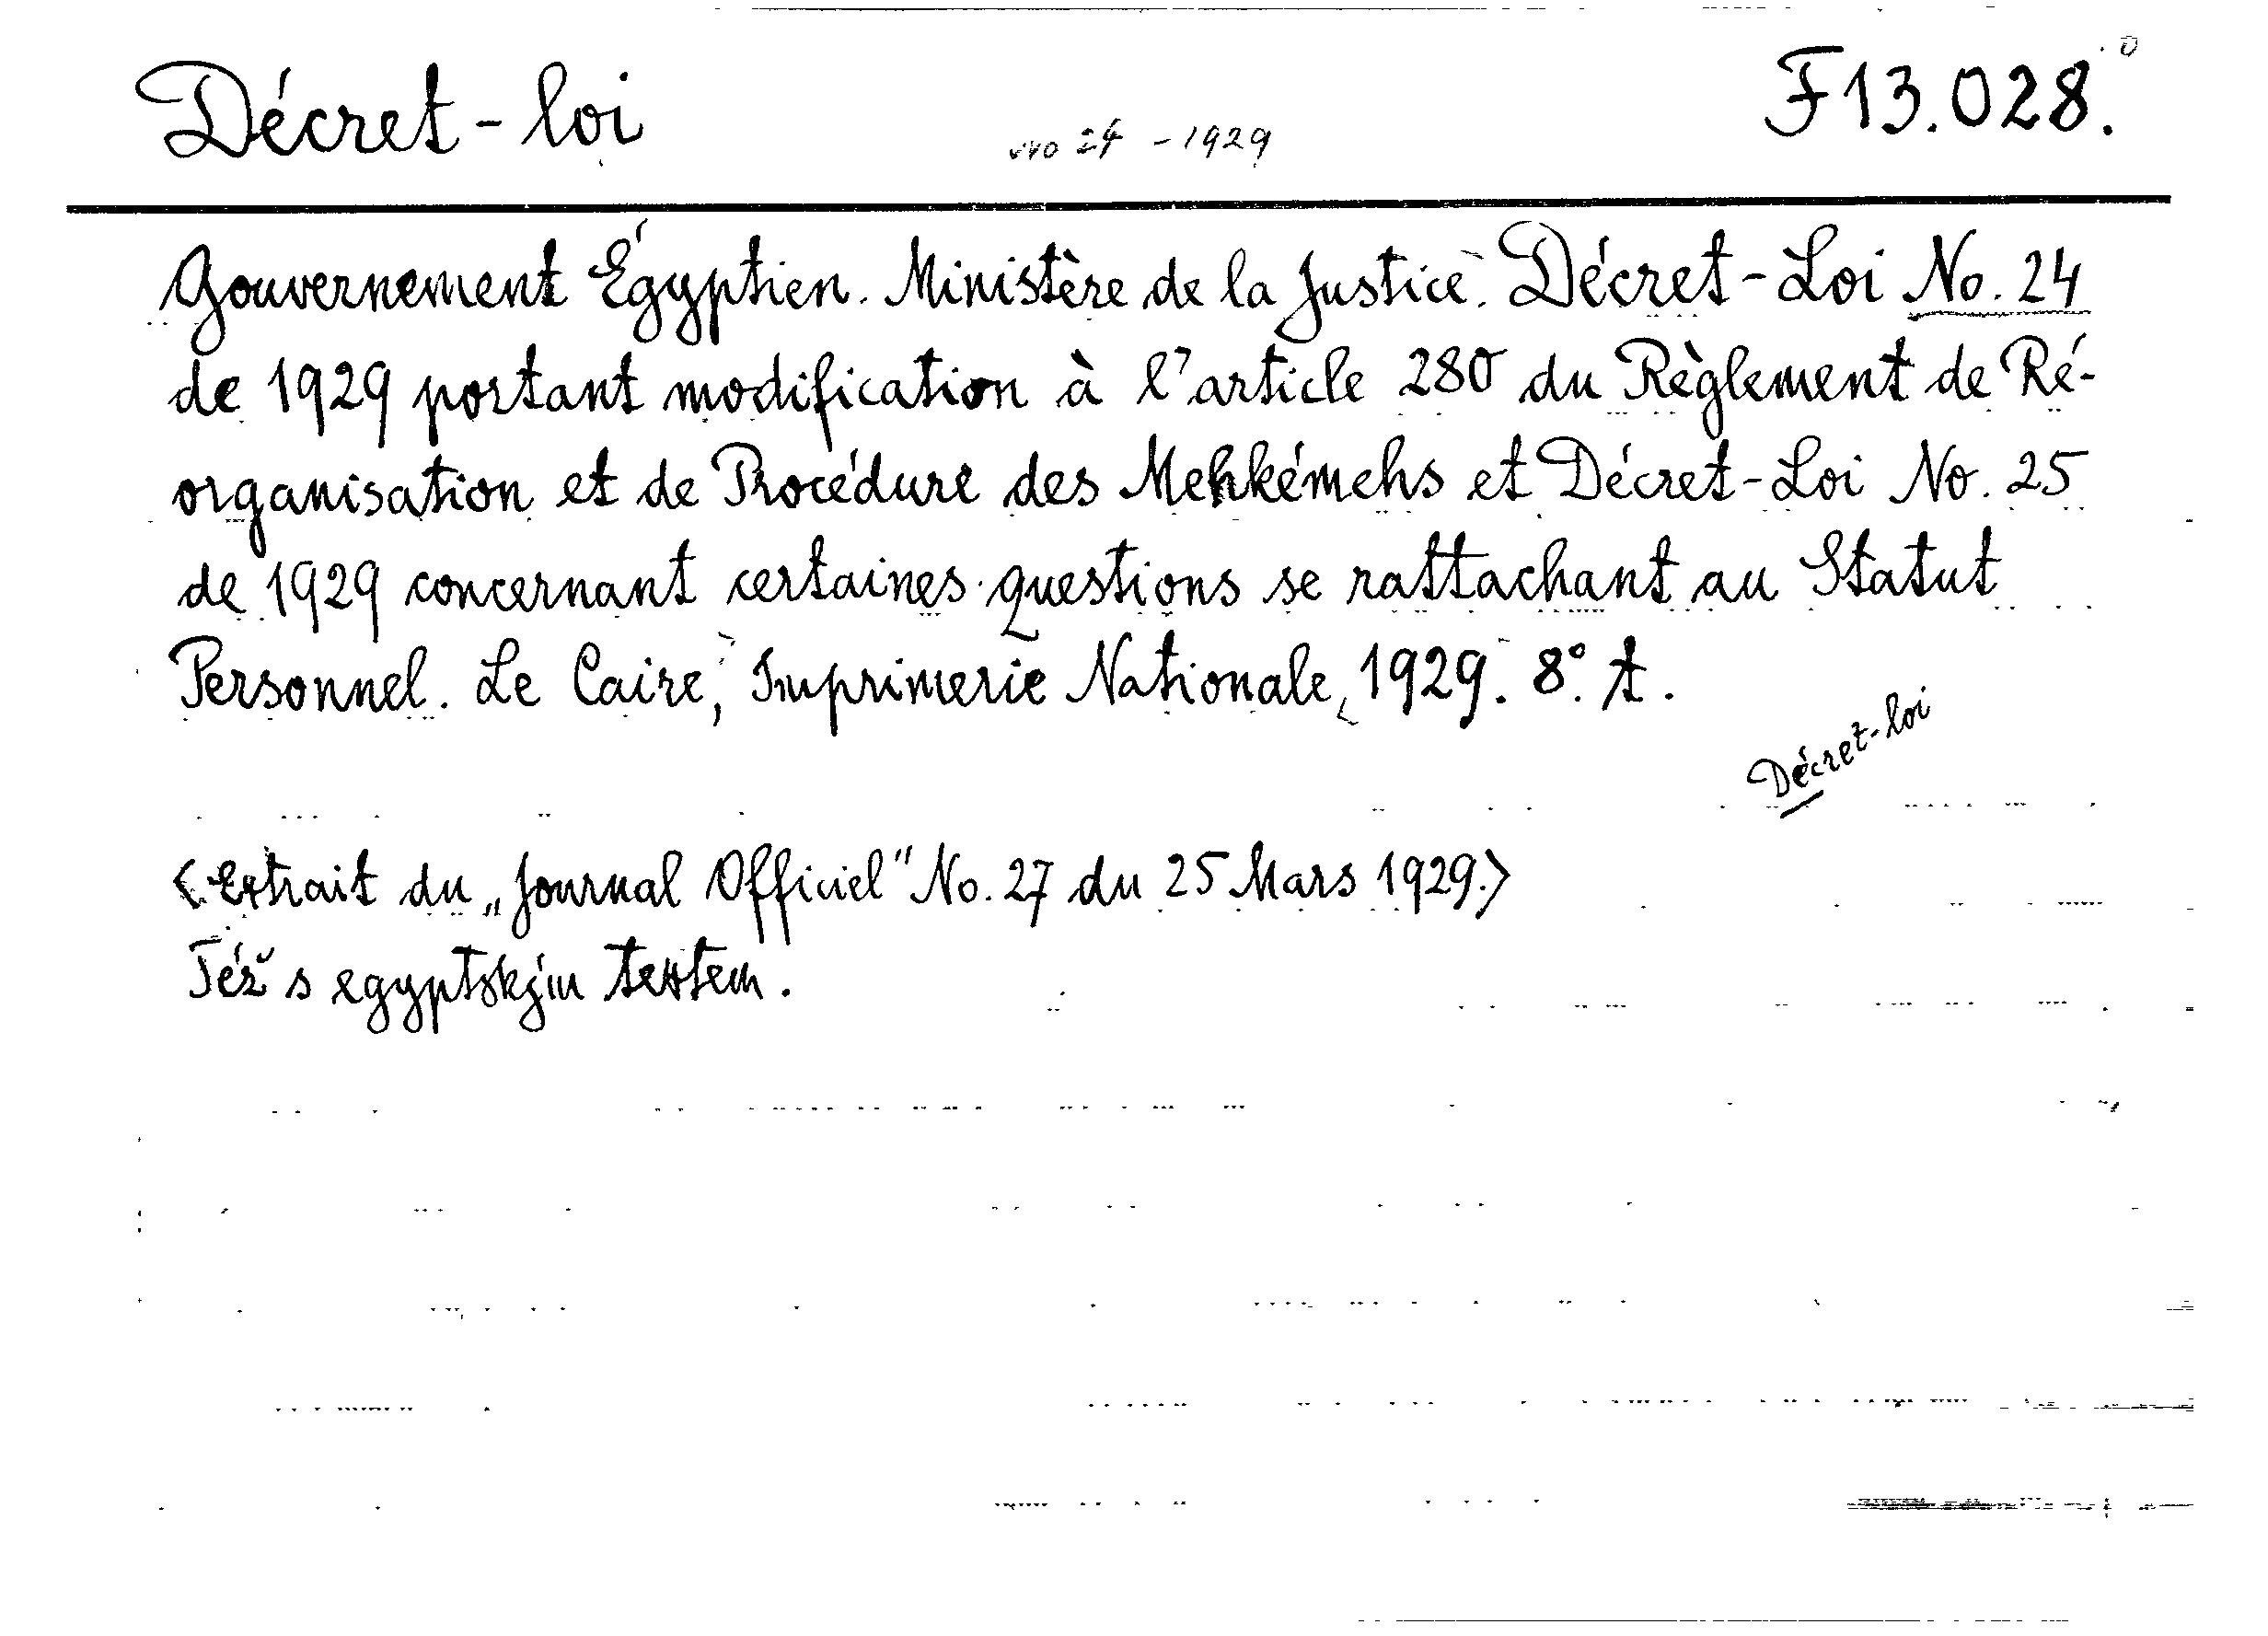 Décret-loi
no 24 - 1929
F 13.028.
Gouvernement Égyptien. Ministère de la Justice. Décret-Loi No. 24
de 1929 portant modification à l'article 280 du Règlement de Ré-
organisation et de Procédure des Mehkémehs et Décret-Loi No. 25
de 1929 concernant certaines questions se rattachant au Statut
Personnel. Le Caire, Imprimerie Nationale, 1929. 8°. A.
Décret-loi
<extrait du „Journal Officiel" No. 27 du 25 Mars 1929.>
Též s egyptským textem.